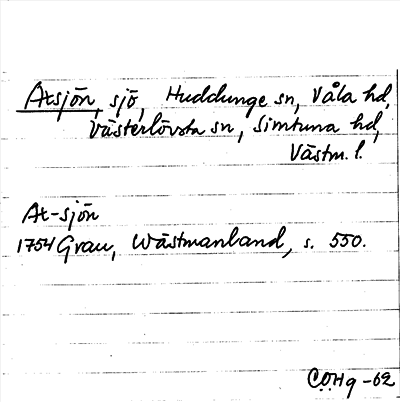 Atsjön, sjö, Huddunge sn, Våla hd,
Västerlövsta sn, Simtuna hd,
Västm. l.
At-sjön
1754 Grau, Wästmanland, s. 550.
C.O.Hg -62